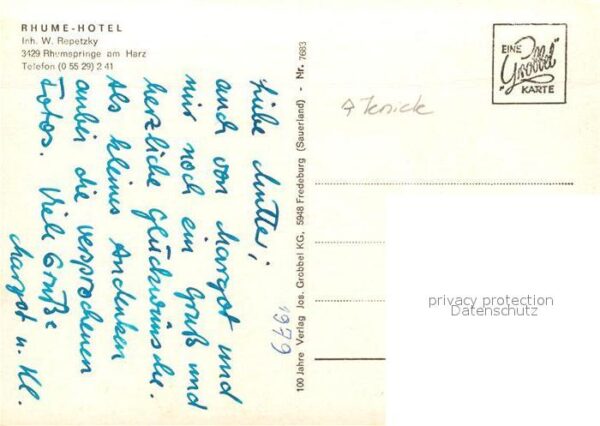 RHUME-HOTEL
Inh. W. Repetzky
3429 Rhumspringe am Harz
Telefon (0 55 29) 2 41
Liebe Mutter,
auch von Margot und
mir noch ein Gruß und
herzliche Glückwünsche.
Als kleines Andenken
anbei die versprochenen
Fotos. Viele Grüße
Margot u. Kl.
1979
100 Jahre Verlag Jos. Grobbel KG, 5948 Fredeburg (Sauerland) - Nr. 7683
EINE
Jos.
"Grobbel"
KARTE
privacy protection
Datenschutz